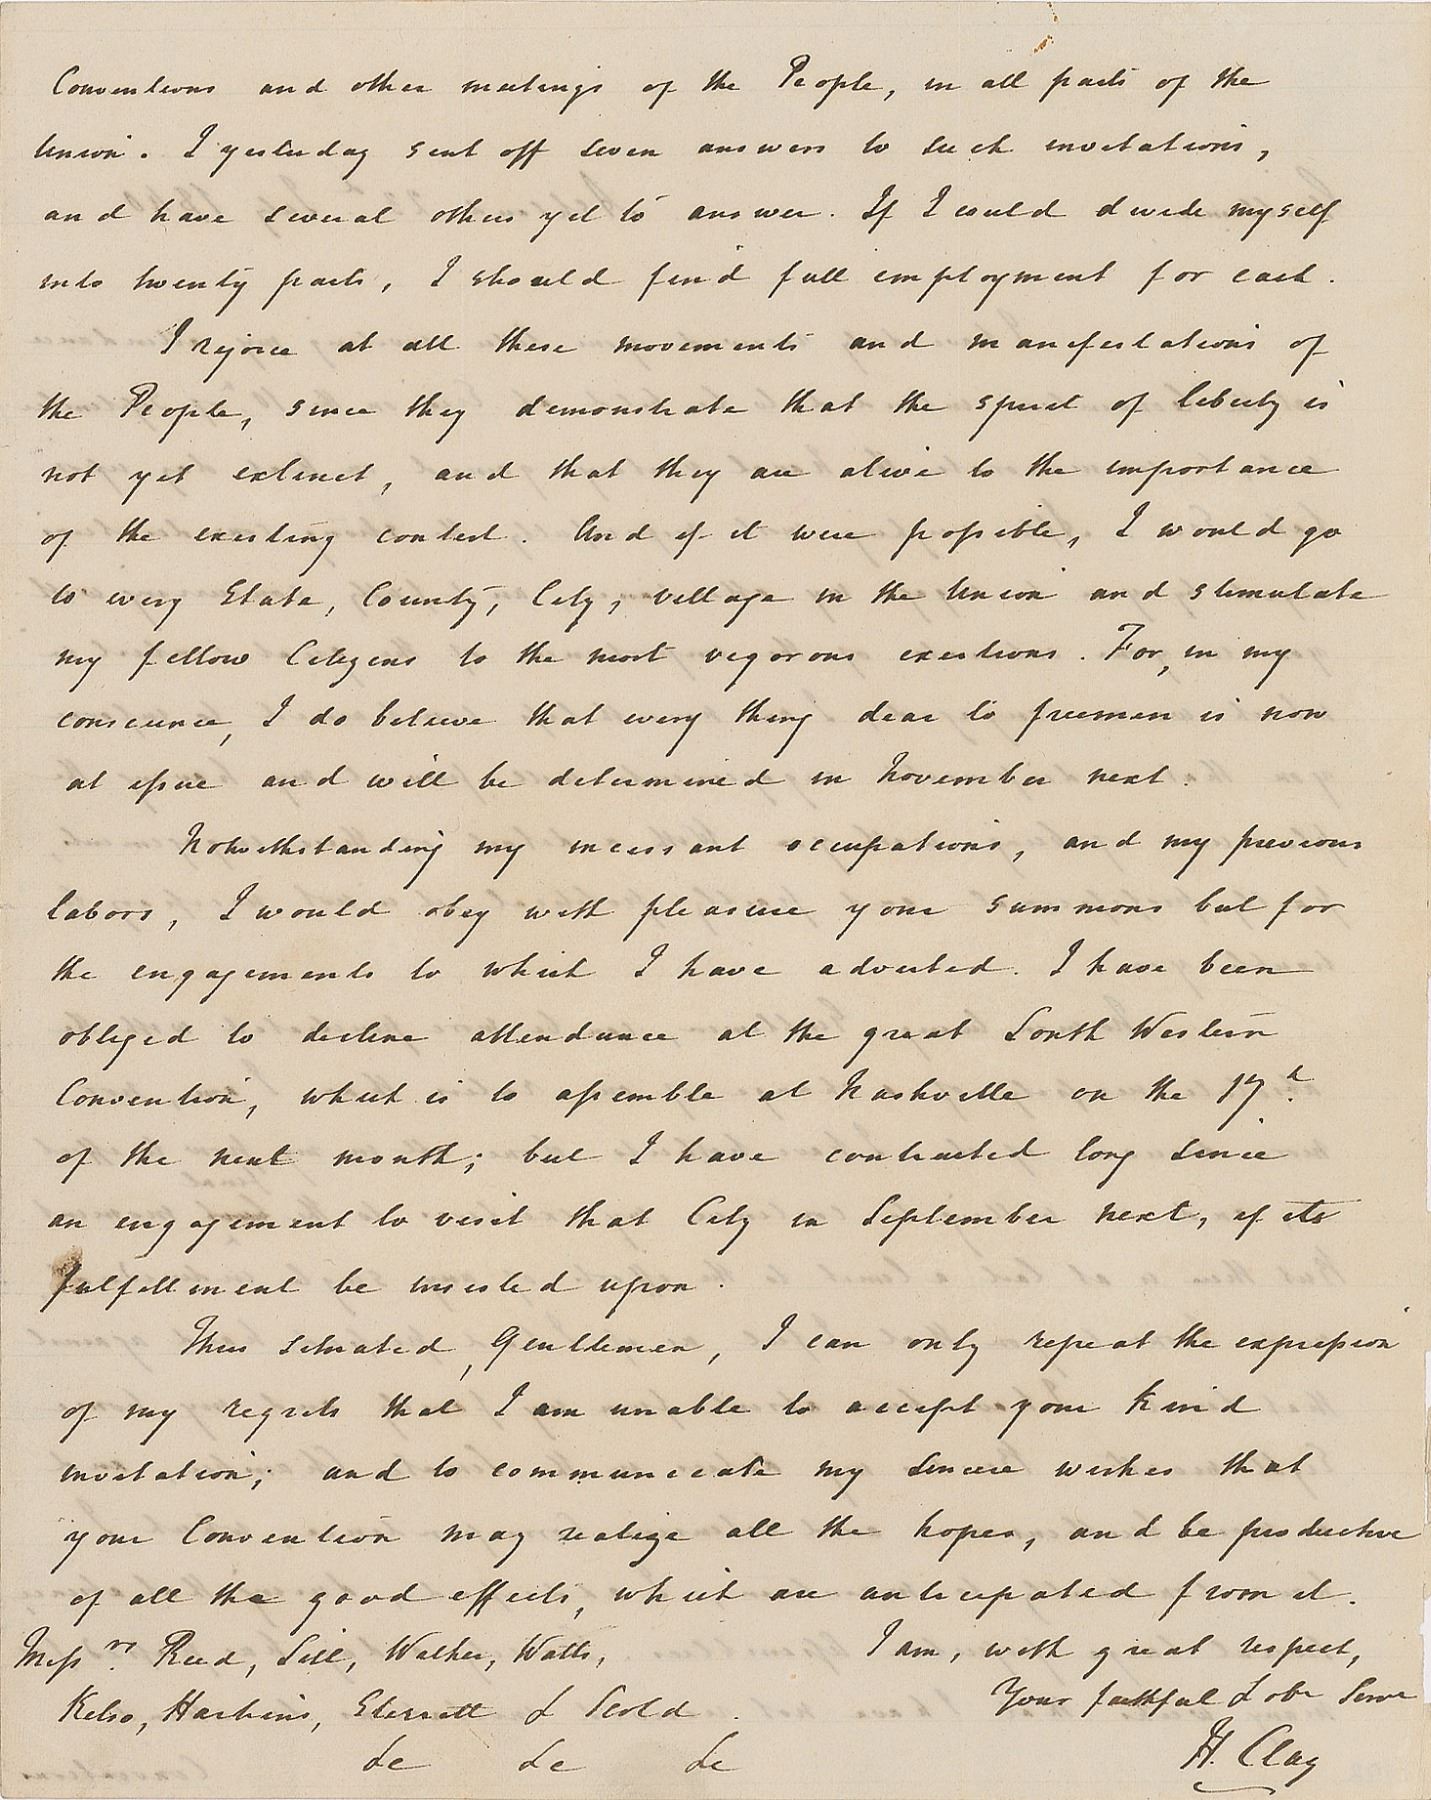 Conventions and other meetings of the People, in all parts of the
Union. I yesterday sent off seven answers to such invitations,
and have several others yet to answer. If I could divide myself
into twenty parts, I should find full employment for each.
I rejoice at all these movements and manifestations of
the People, since they demonstrate that the spirit of liberty is
not yet extinct, and that they are alive to the importance
of the existing contest. And if it were possible, I would go
to every State, County, City, village in the Union and stimulate
my fellow Citizens to the most vigorous exertions. For, in my
conscience, I do believe that every thing dear to freemen is now
at issue and will be determined in November next.
Notwithstanding my incessant occupations, and my previous
labors, I would obey with pleasure your summons but for
the engagements to which I have adverted. I have been
obliged to decline attendance at the great South Western
Convention, which is to assemble at Nashville on the 17h.
of the next month; but I have contracted long since
an engagement to visit that City in September next, if its
fulfillment be insisted upon.
Thus situated, Gentlemen, I can only repeat the expression
of my regrets that I am unable to accept your kind
invitation; and to communicate my sincere wishes that
your Convention may realize all the hopes, and be productive
of all the good effects, which are anticipated from it.
Messrs. Reed, Sill, Walker, Watts, I am, with great respect,
Kelso, Haskins, Sterrett & Scold. Your faithful & obt Serve
&c &c &c H. Clay